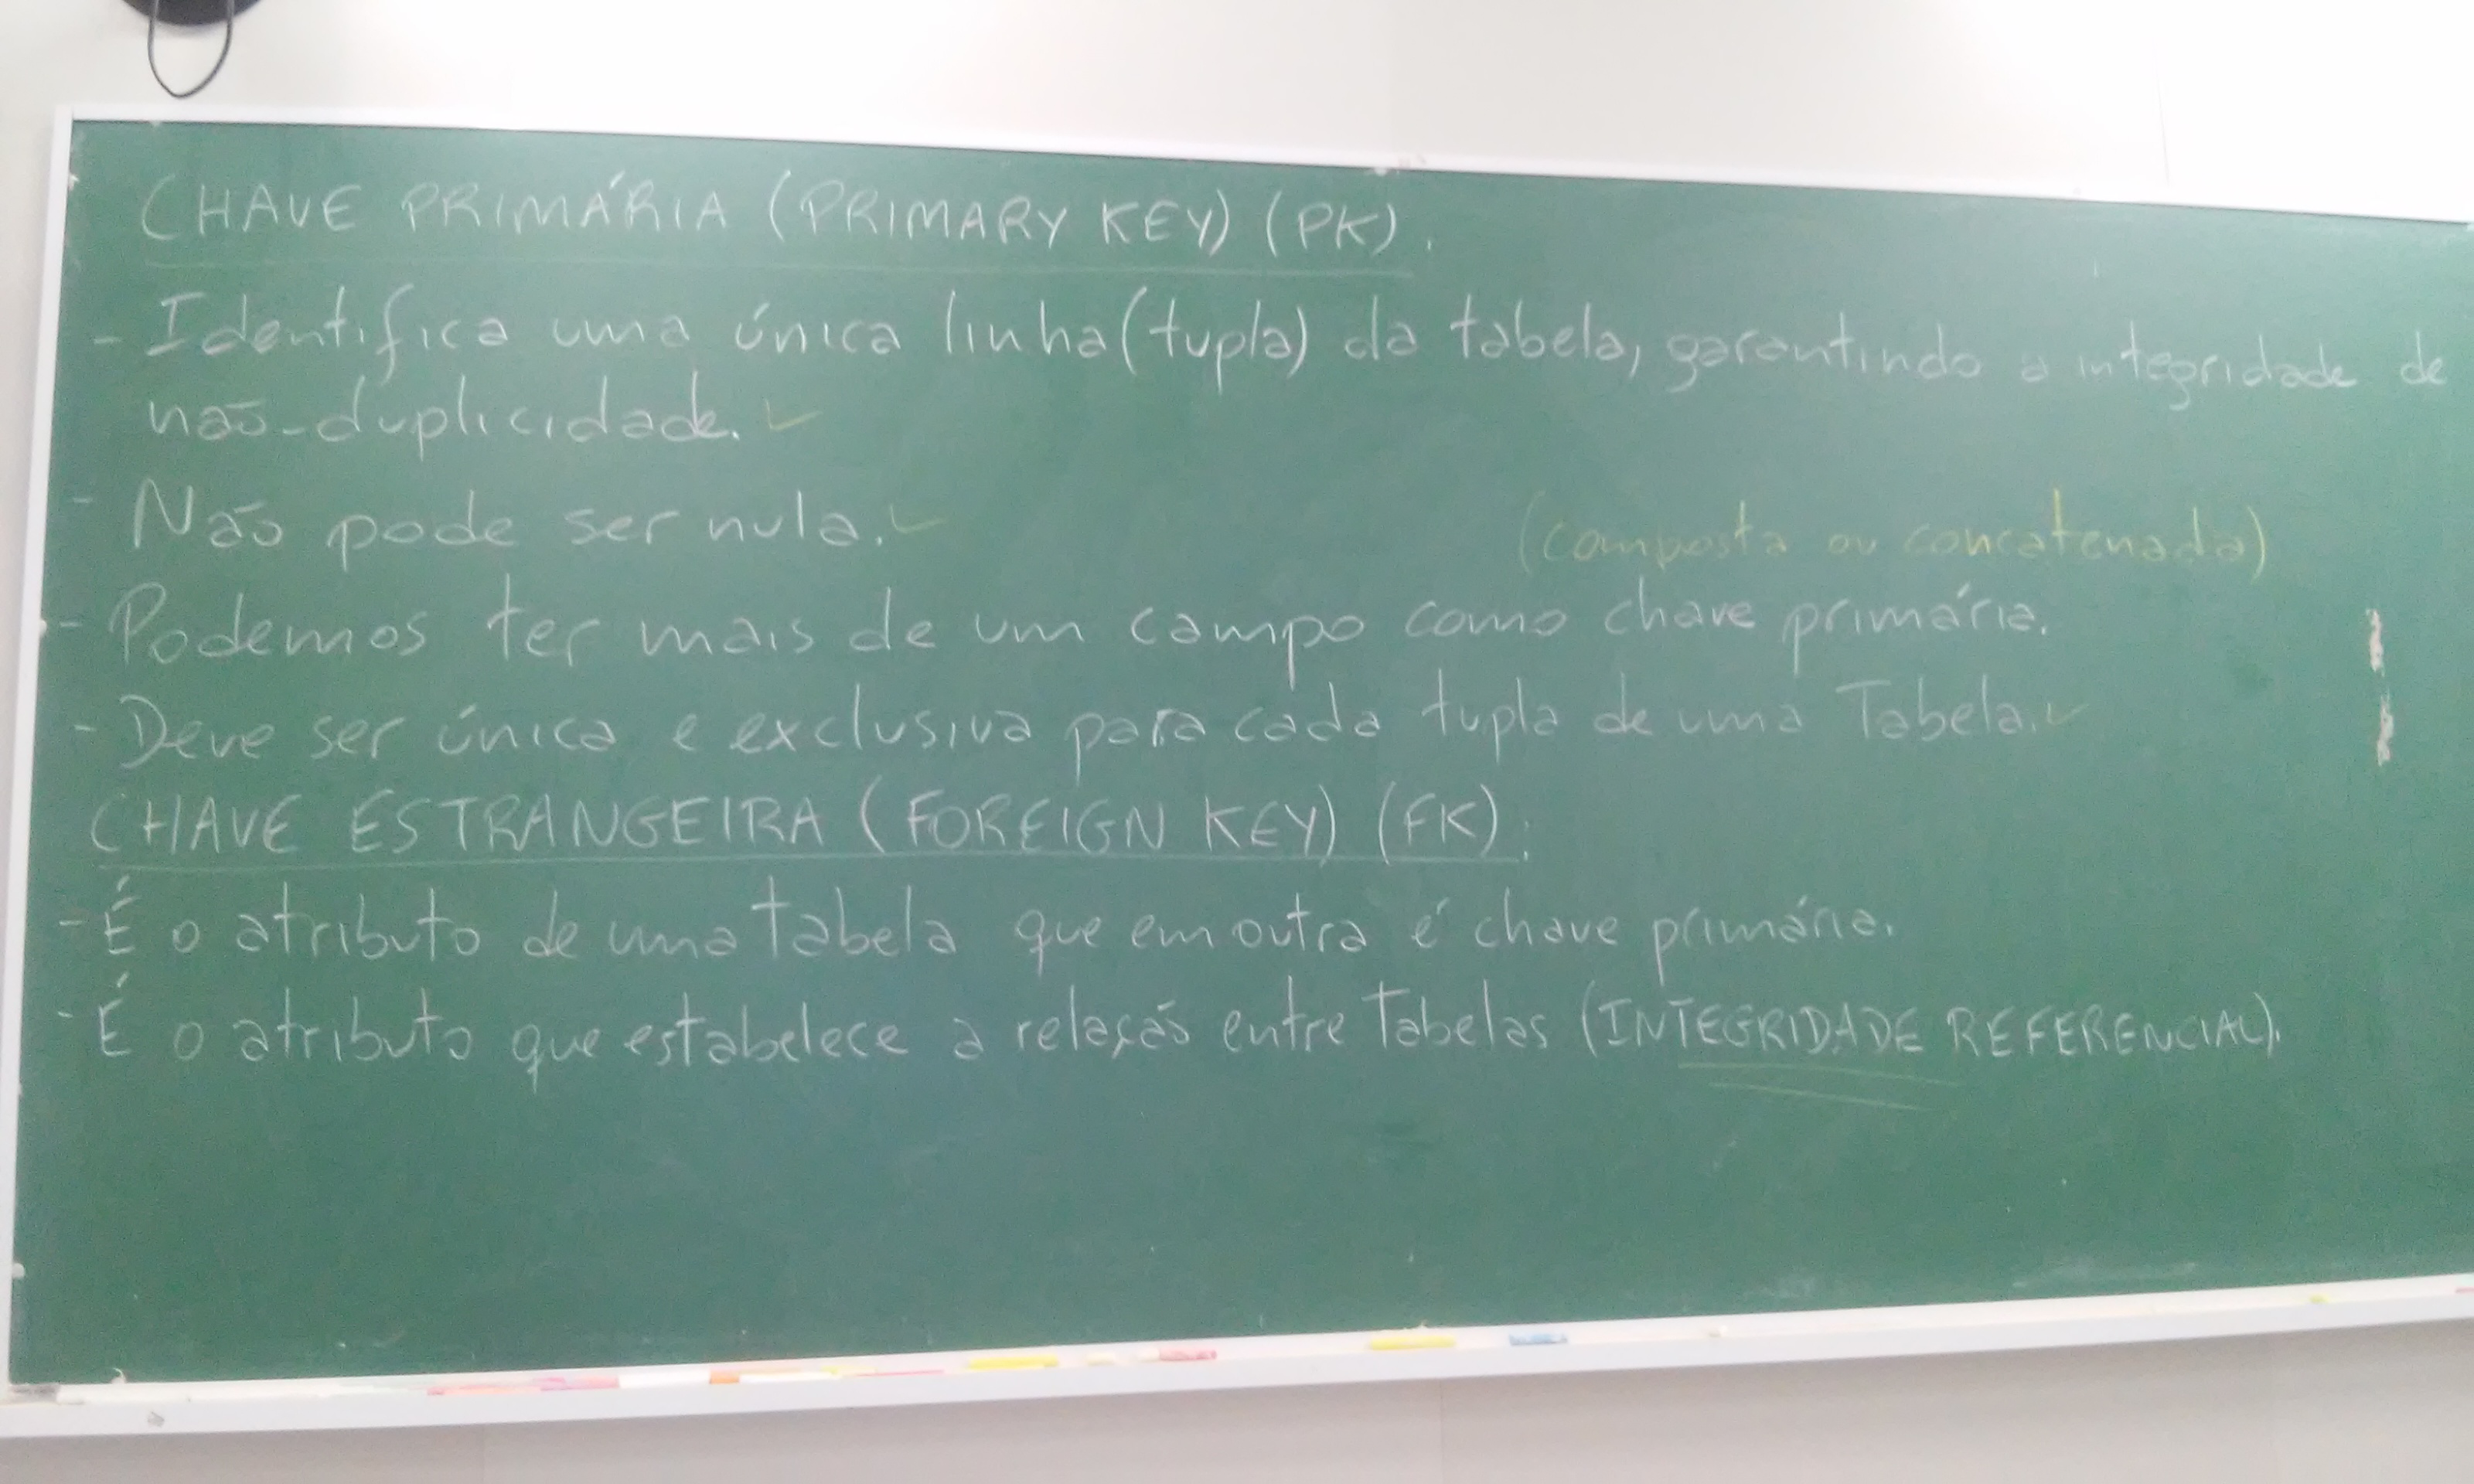 CHAVE PRIMÁRIA (PRIMARY KEY) (PK).
- Identifica uma única linha (tupla) da tabela, garantindo a integridade de
não-duplicidade.
- Não pode ser nula.
(composta ou concatenada)
- Podemos ter mais de um campo como chave primária.
- Deve ser única e exclusiva para cada tupla de uma Tabela.
CHAVE ESTRANGEIRA (FOREIGN KEY) (FK):
- É o atributo de uma tabela que em outra é chave primária.
- É o atributo que estabelece a relação entre Tabelas (INTEGRIDADE REFERENCIAL).